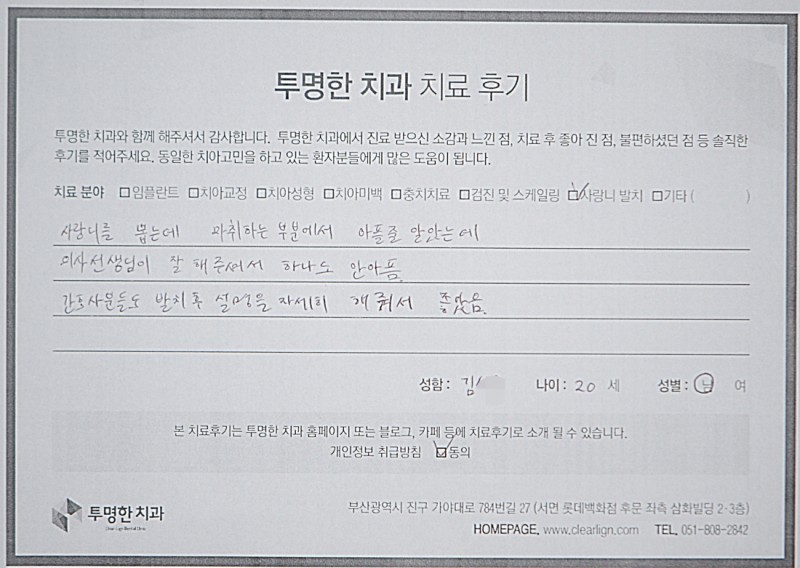 투명한 치과 치료 후기
투명한 치과와 함께 해주셔서 감사합니다. 투명한 치과에서 진료 받으신 소감과 느낀 점, 치료 후 좋아 진 점, 불편하셨던 점 등 솔직한
후기를 적어주세요. 동일한 치아고민을 하고 있는 환자분들에게 많은 도움이 됩니다.
치료 분야 □임플란트 □치아교정 □치아성형 □치아미백 □충치치료 □검진 및 스케일링 ☑사랑니 발치 □기타 ( )
사랑니를 뽑는데 마취하는 부분에서 아플줄 알았는데
의사선생님이 잘 해주셔서 하나도 안아픔
간호사분들도 발치후 설명을 자세히 해줘서 좋았음
성함: 김 나이: 20 세 성별: 남 여
본 치료후기는 투명한 치과 홈페이지 또는 블로그, 카페 등에 치료후기로 소개 될 수 있습니다.
개인정보 취급방침 ☑동의
투명한 치과
부산광역시 진구 가야대로 784번길 27 (서면 롯데백화점 후문 좌측 삼화빌딩 2·3층)
HOMEPAGE. www.clearlign.com TEL. 051-808-2842